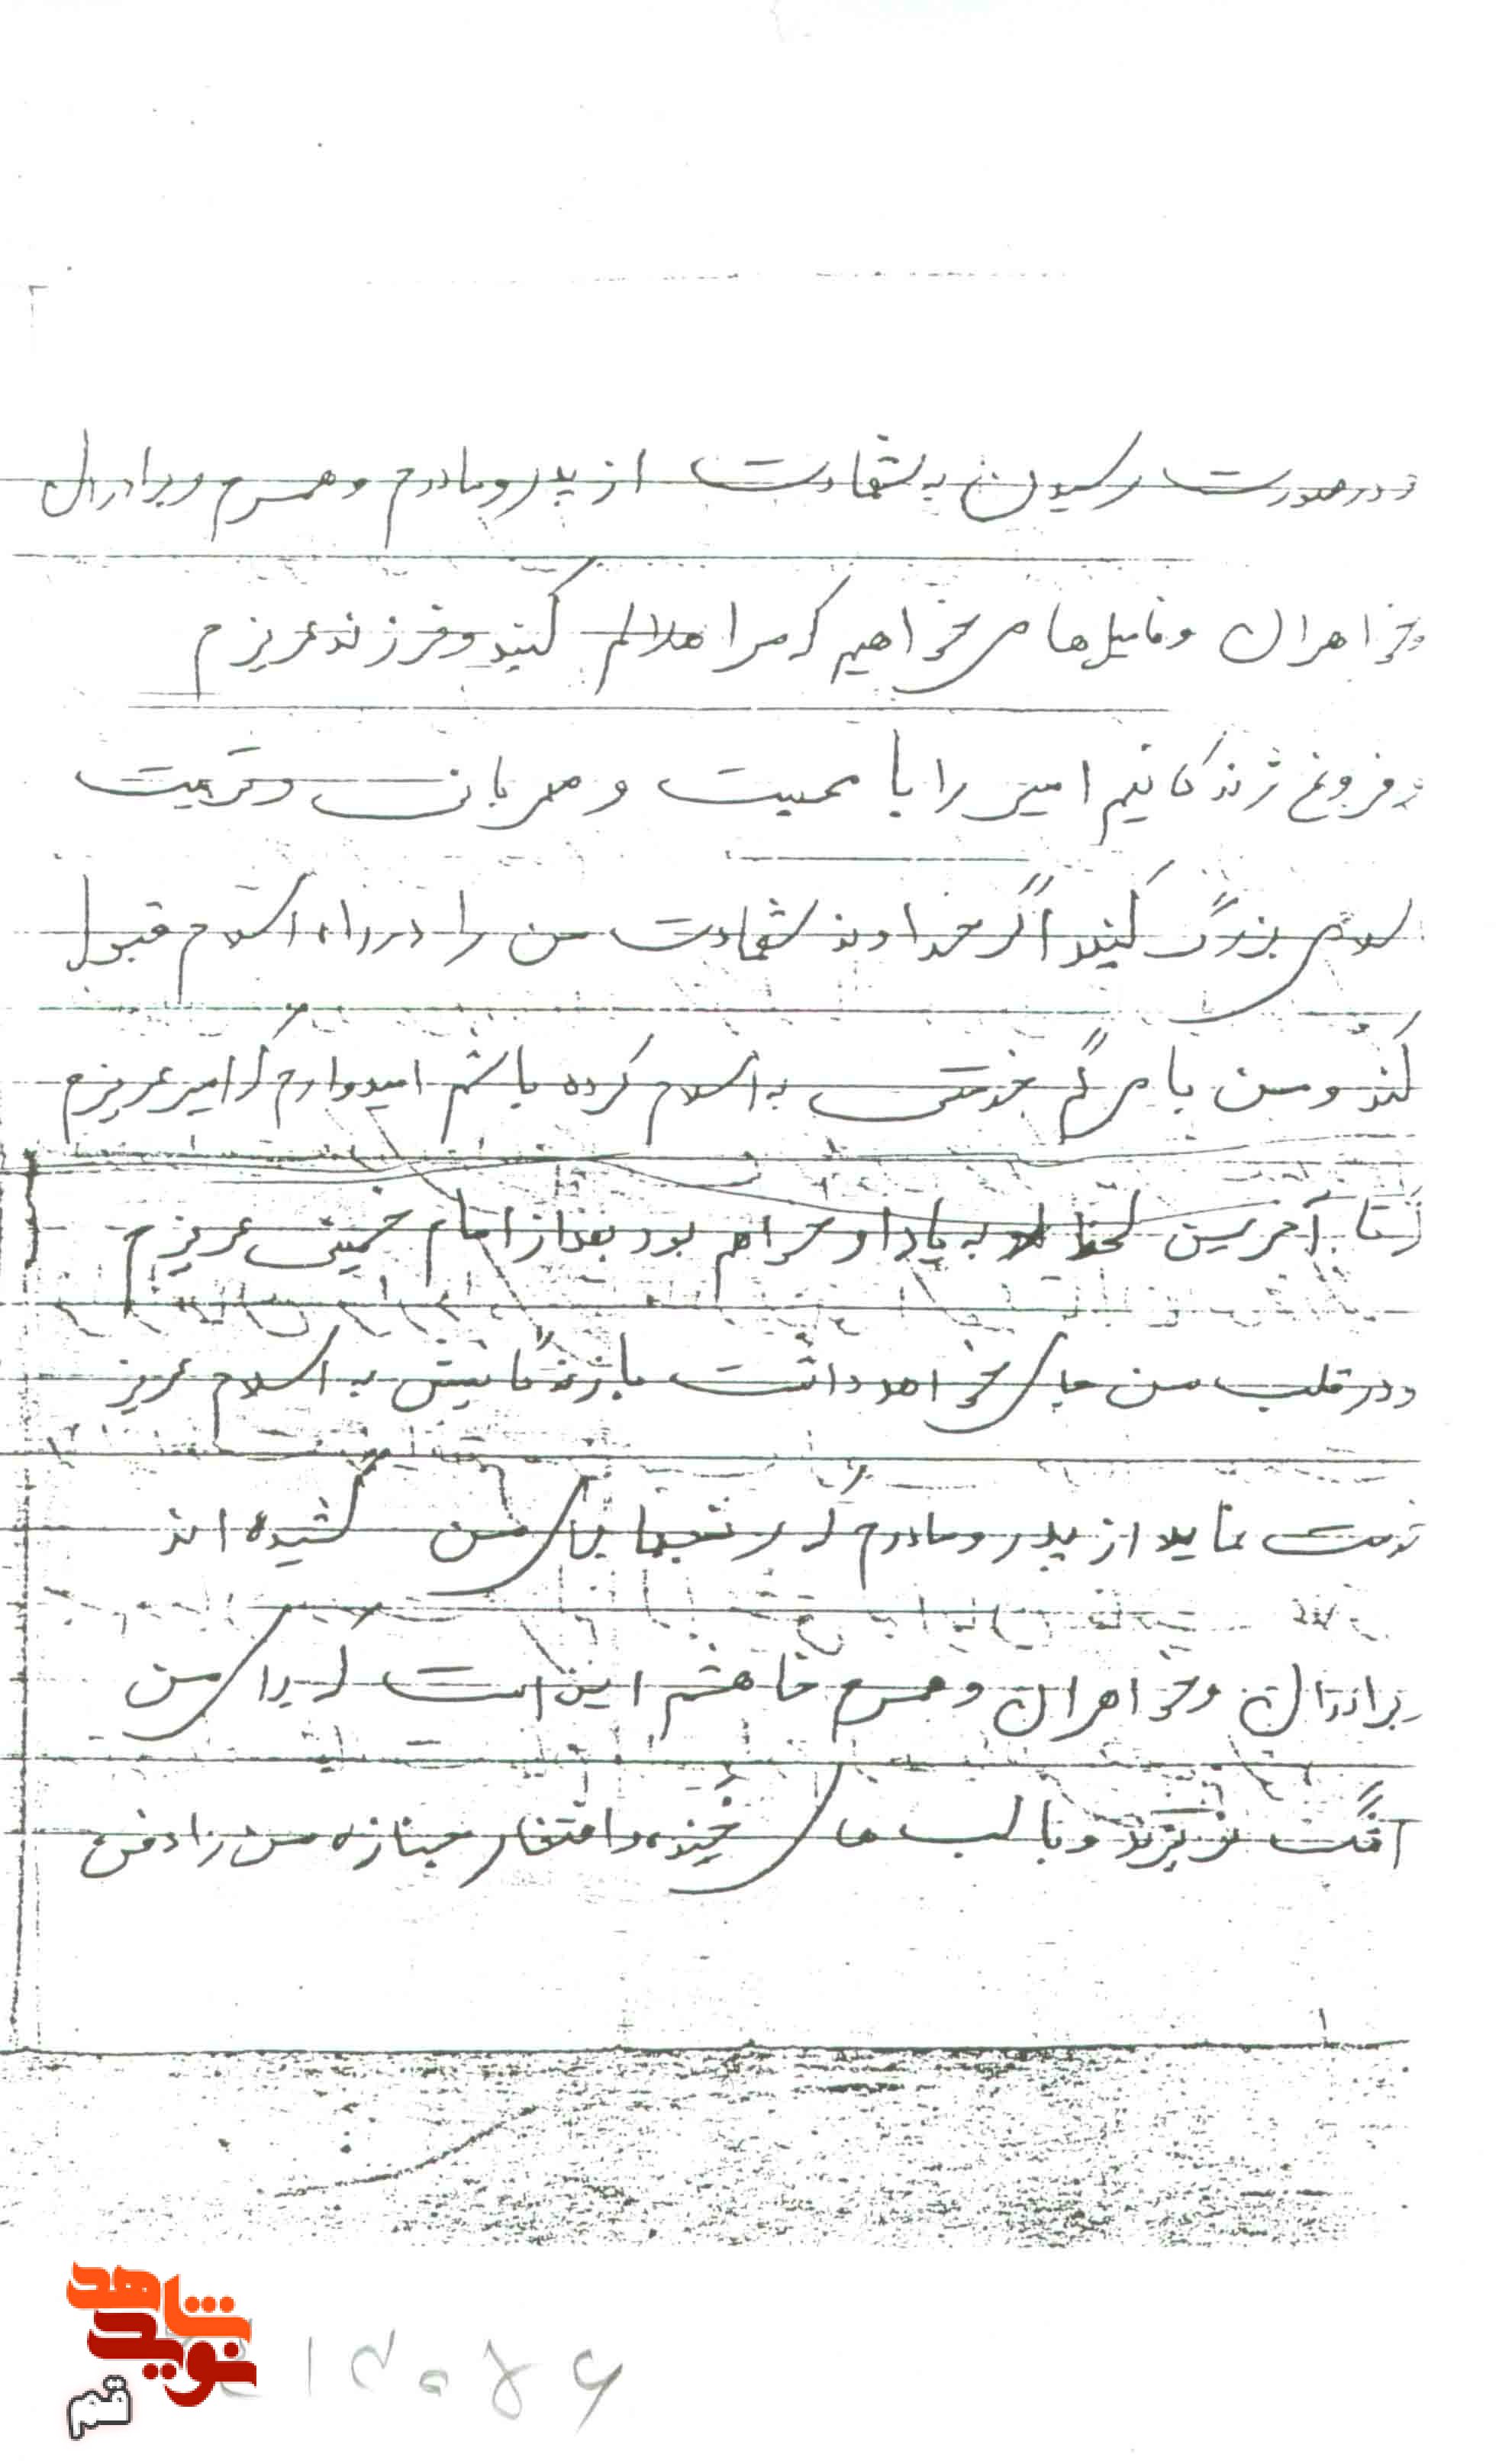 و در صورت رسیدن به شهادت از پدر و مادرم و همسرم و برادران
و خواهران و فامیل ها می خواهیم که مرا هلالم کنید و فرزند عزیزم
و فروغ زندگانیم امیر را با محبت و مهربانی و تربیت
اسلامی بزرگ کنید اگر خداوند شهادت من را در راه اسلام قبول
کند و من با مرگم خدمتی به اسلام کرده باشم امیدوارم که امیر عزیزم
که تا آخرین لحظه به یاد او خواهم بود بعد از امام خمینی عزیزم
و در قلب من جای خواهد داشت با زندگانیش به اسلام عزیز
خدمت نماید از پدر و مادرم که رنجها برای من کشیده اند
برادران و خواهران و همسرم خاهشم این است که برای من
اشگ نریزند و با لب های خنده و افتخار جنازه من را دفن
شاهد
نوید
قم